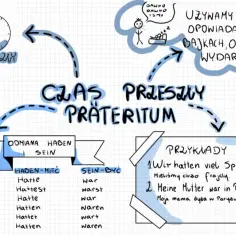 DAWNO
DAWNO
UŻYWAMY
OPOWIADA
BAJKACH, O
WYDAR
CZAS PRZESZŁY
PRÄTERITUM
ODMIANA HABEN
SEIN
HABEN-MIEĆ SEIN-BYĆ
Hatte war
Hattest warst
Hatte war
Hatten waren
Hattet wart
Hatten waren
PRZYKŁADY
1. Wir hatten viel Sp
Mieliśmy dużo frajdy
2. Meine Mutter war in P
Moja mama była w Paryżu